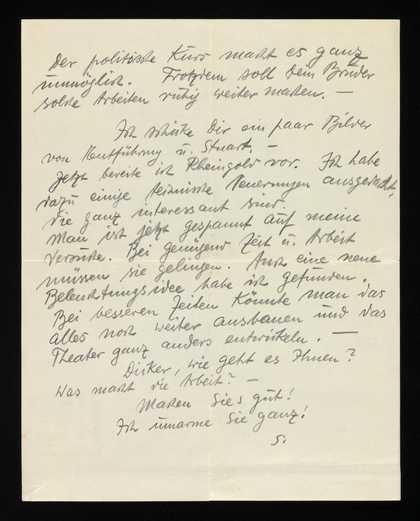 Der politische Kurs macht es ganz
unmöglich. Trotzdem soll Dein Bruder
solche Arbeiten ruhig weiter machen. —
Ich schicke Dir ein paar Bilder
von Entführung u. Stuart. —
Jetzt bereite ich Rheingold vor. Ich habe
dazu einige technische Neuerungen ausgedacht,
die ganz interessant sind.
Man ist jetzt gespannt auf meine
Versuche. Bei genügend Zeit u. Arbeit
müssen sie gelingen. Auch eine neue
Beleuchtungsidee habe ich gefunden.
Bei besseren Zeiten könnte man das
alles noch weiter ausbauen und das
Theater ganz anders entwickeln. —
wie geht es Ihnen?
Was macht die Arbeit? —
Machen Sie's gut!
Ich umarme Sie ganz!
S.